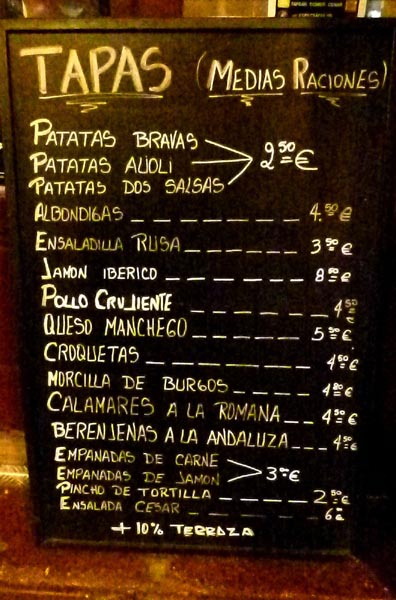 TAPAS (MEDIAS RACIONES)
PATATAS BRAVAS
PATATAS ALIOLI 2.50€
PATATAS DOS SALSAS
ALBONDIGAS _ _ _ _ _ _ _ 4.50€
ENSALADILLA RUSA _ _ _ _ _ 3.50€
JAMON IBERICO _ _ _ _ _ _ 8.50€
POLLO CRUJIENTE _ _ _ _ _ _ 4.50€
QUESO MANCHEGO _ _ _ _ _ 5.50€
CROQUETAS _ _ _ _ _ _ _ 4.50€
MORCILLA DE BURGOS _ _ _ _ 4.80€
CALAMARES A LA ROMANA _ _ 4.50€
BERENJENAS A LA ANDALUZA _ _ _ 4.50€
EMPANADAS DE CARNE
EMPANADAS DE JAMON 3€
PINCHO DE TORTILLA _ _ _ _ _ 2.50€
ENSALADA CESAR _ _ _ _ _ _ _ 6€
+ 10% TERRAZA